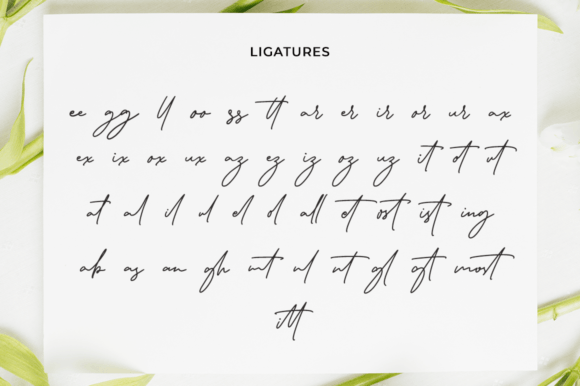 LIGATURES
ee gg ll oo ss tt ar er ir or ur ax
ex ix ox ux az ez iz oz uz it ot ut
at al il ul el ol all et ost ist ing
ab as an gh mt nl nt gl gt most
itt